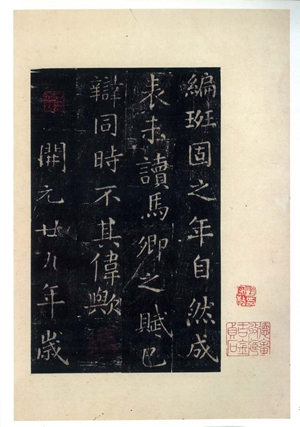 編斑固之年自然成
表未讀馬卿之賦已
辯同時不其偉歟
開元廿九年歲